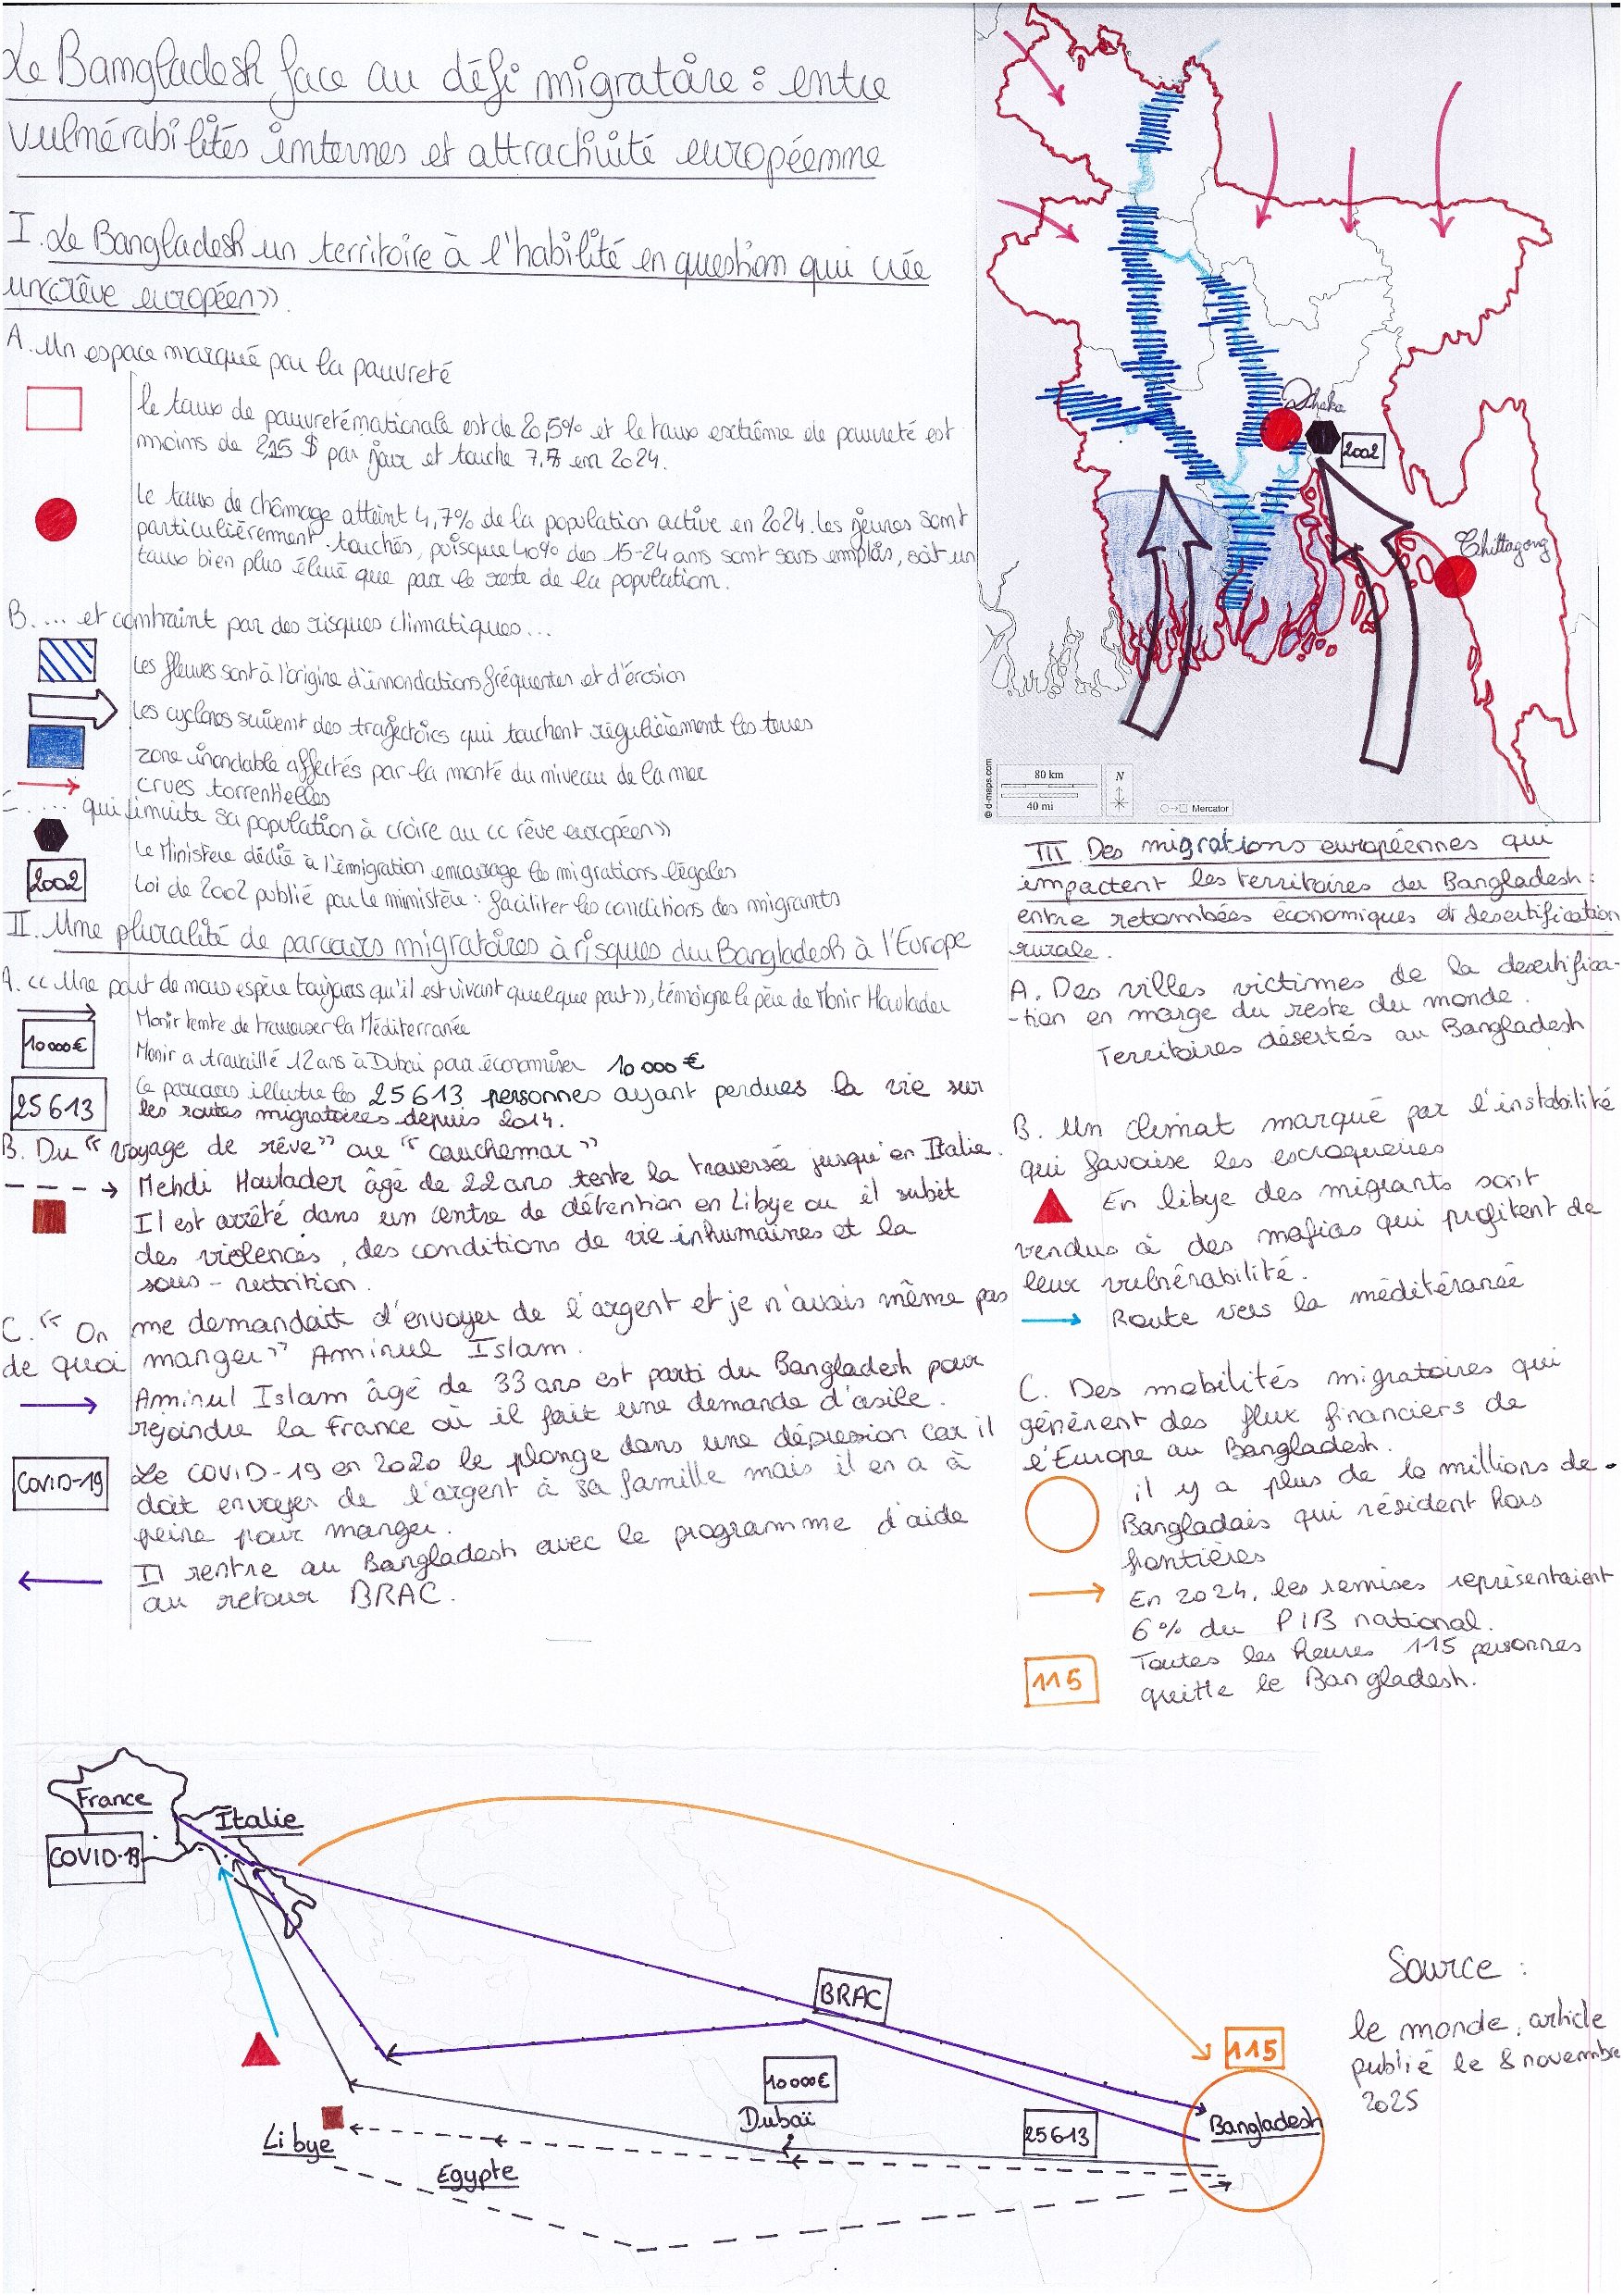 Le Bangladesh face au défi migratoire : entre
vulnérabilités internes et attractivité européenne
I. Le Bangladesh un territoire à l'habilité en question qui crée
un «rêve européen».
A. Un espace marqué par la pauvreté
le taux de pauvreté nationale est de 20,5% et le taux extrême de pauvreté est
moins de 2,15 $ par jour et touche 7,7 en 2024.
Le taux de chômage atteint 4,7% de la population active en 2024. Les jeunes sont
particulièrement touchés, puisque 40% des 15-24 ans sont sans emplois, soit un
taux bien plus élevé que par le reste de la population.
B. ... et contraint par des risques climatiques...
Les fleuves sont à l'origine d'innondations fréquentes et d'érosion
Les cyclones suivent des trajectoirs qui touchent régulièrement les terres
zone inondable affectés par la monté du niveau de la mer
crues torrentielles
C. ... qui limuite sa population à croire au «rêve européen»
Le Ministère dédié à l'émigration encourage les migrations légales
2002
Loi de 2002 publié par le ministère : faciliter les conditions des migrants
II. Une pluralité de parcours migratoires à risques du Bangladesh à l'Europe
A. «Une part de nous espère toujours qu'il est vivant quelque part», témoigne le père de Monir Hawlader
Monir tente de traverser la Méditerranée
10 000€
Monir a travaillé 12 ans à Dubai pour économiser 10 000 €
25 613
Ce parcours illustre les 25 613 personnes ayant perdues la vie sur
les routes migratoires depuis 2014.
B. Du "voyage de rêve" au "cauchemar"
Mehdi Hawlader âgé de 22 ans tente la traversée jusqu'en Italie.
Il est arrêté dans un centre de détention en Libye ou il subit
des violences, des conditions de vie inhumaines et la
sous-nutrition.
C. "On me demandait d'envoyer de l'argent et je n'avais même pas
de quoi manger" Aminul Islam.
Aminul Islam âgé de 33 ans est parti du Bangladesh pour
rejoindre la France où il fait une demande d'asile.
COVID-19
Le COVID-19 en 2020 le plonge dans une dépression car il
doit envoyer de l'argent à sa famille mais il en a à
peine pour manger.
Il rentre au Bangladesh avec le programme d'aide
au retour BRAC.
Dhaka
2002
Chittagong
© d-maps.com
80 km
40 mi
N
Mercator
III. Des migrations européennes qui
impactent les territoires du Bangladesh :
entre retombées économiques et desertification
rurale.
A. Des villes victimes de la desertifica-
-tion en marge du reste du monde.
Territoires désertés au Bangladesh
B. Un climat marqué par l'instabilité
qui favorise les escroqueries
En libye des migrants sont
vendus à des mafias qui profitent de
leur vulnérabilité.
Route vers la méditéranée
C. Des mobilités migratoires qui
génèrent des flux financiers de
l'Europe au Bangladesh.
il y a plus de 10 millions de
Bangladais qui résident hors
frontières
En 2024, les remises représentaient
6% du PIB national.
115
Toutes les heures 115 personnes
quitte le Bangladesh.
France
Italie
COVID-19
BRAC
10 000€
Dubaï
25613
115
Bangladesh
Libye
Egypte
Source :
le monde, article
publié le 8 novembre
2025